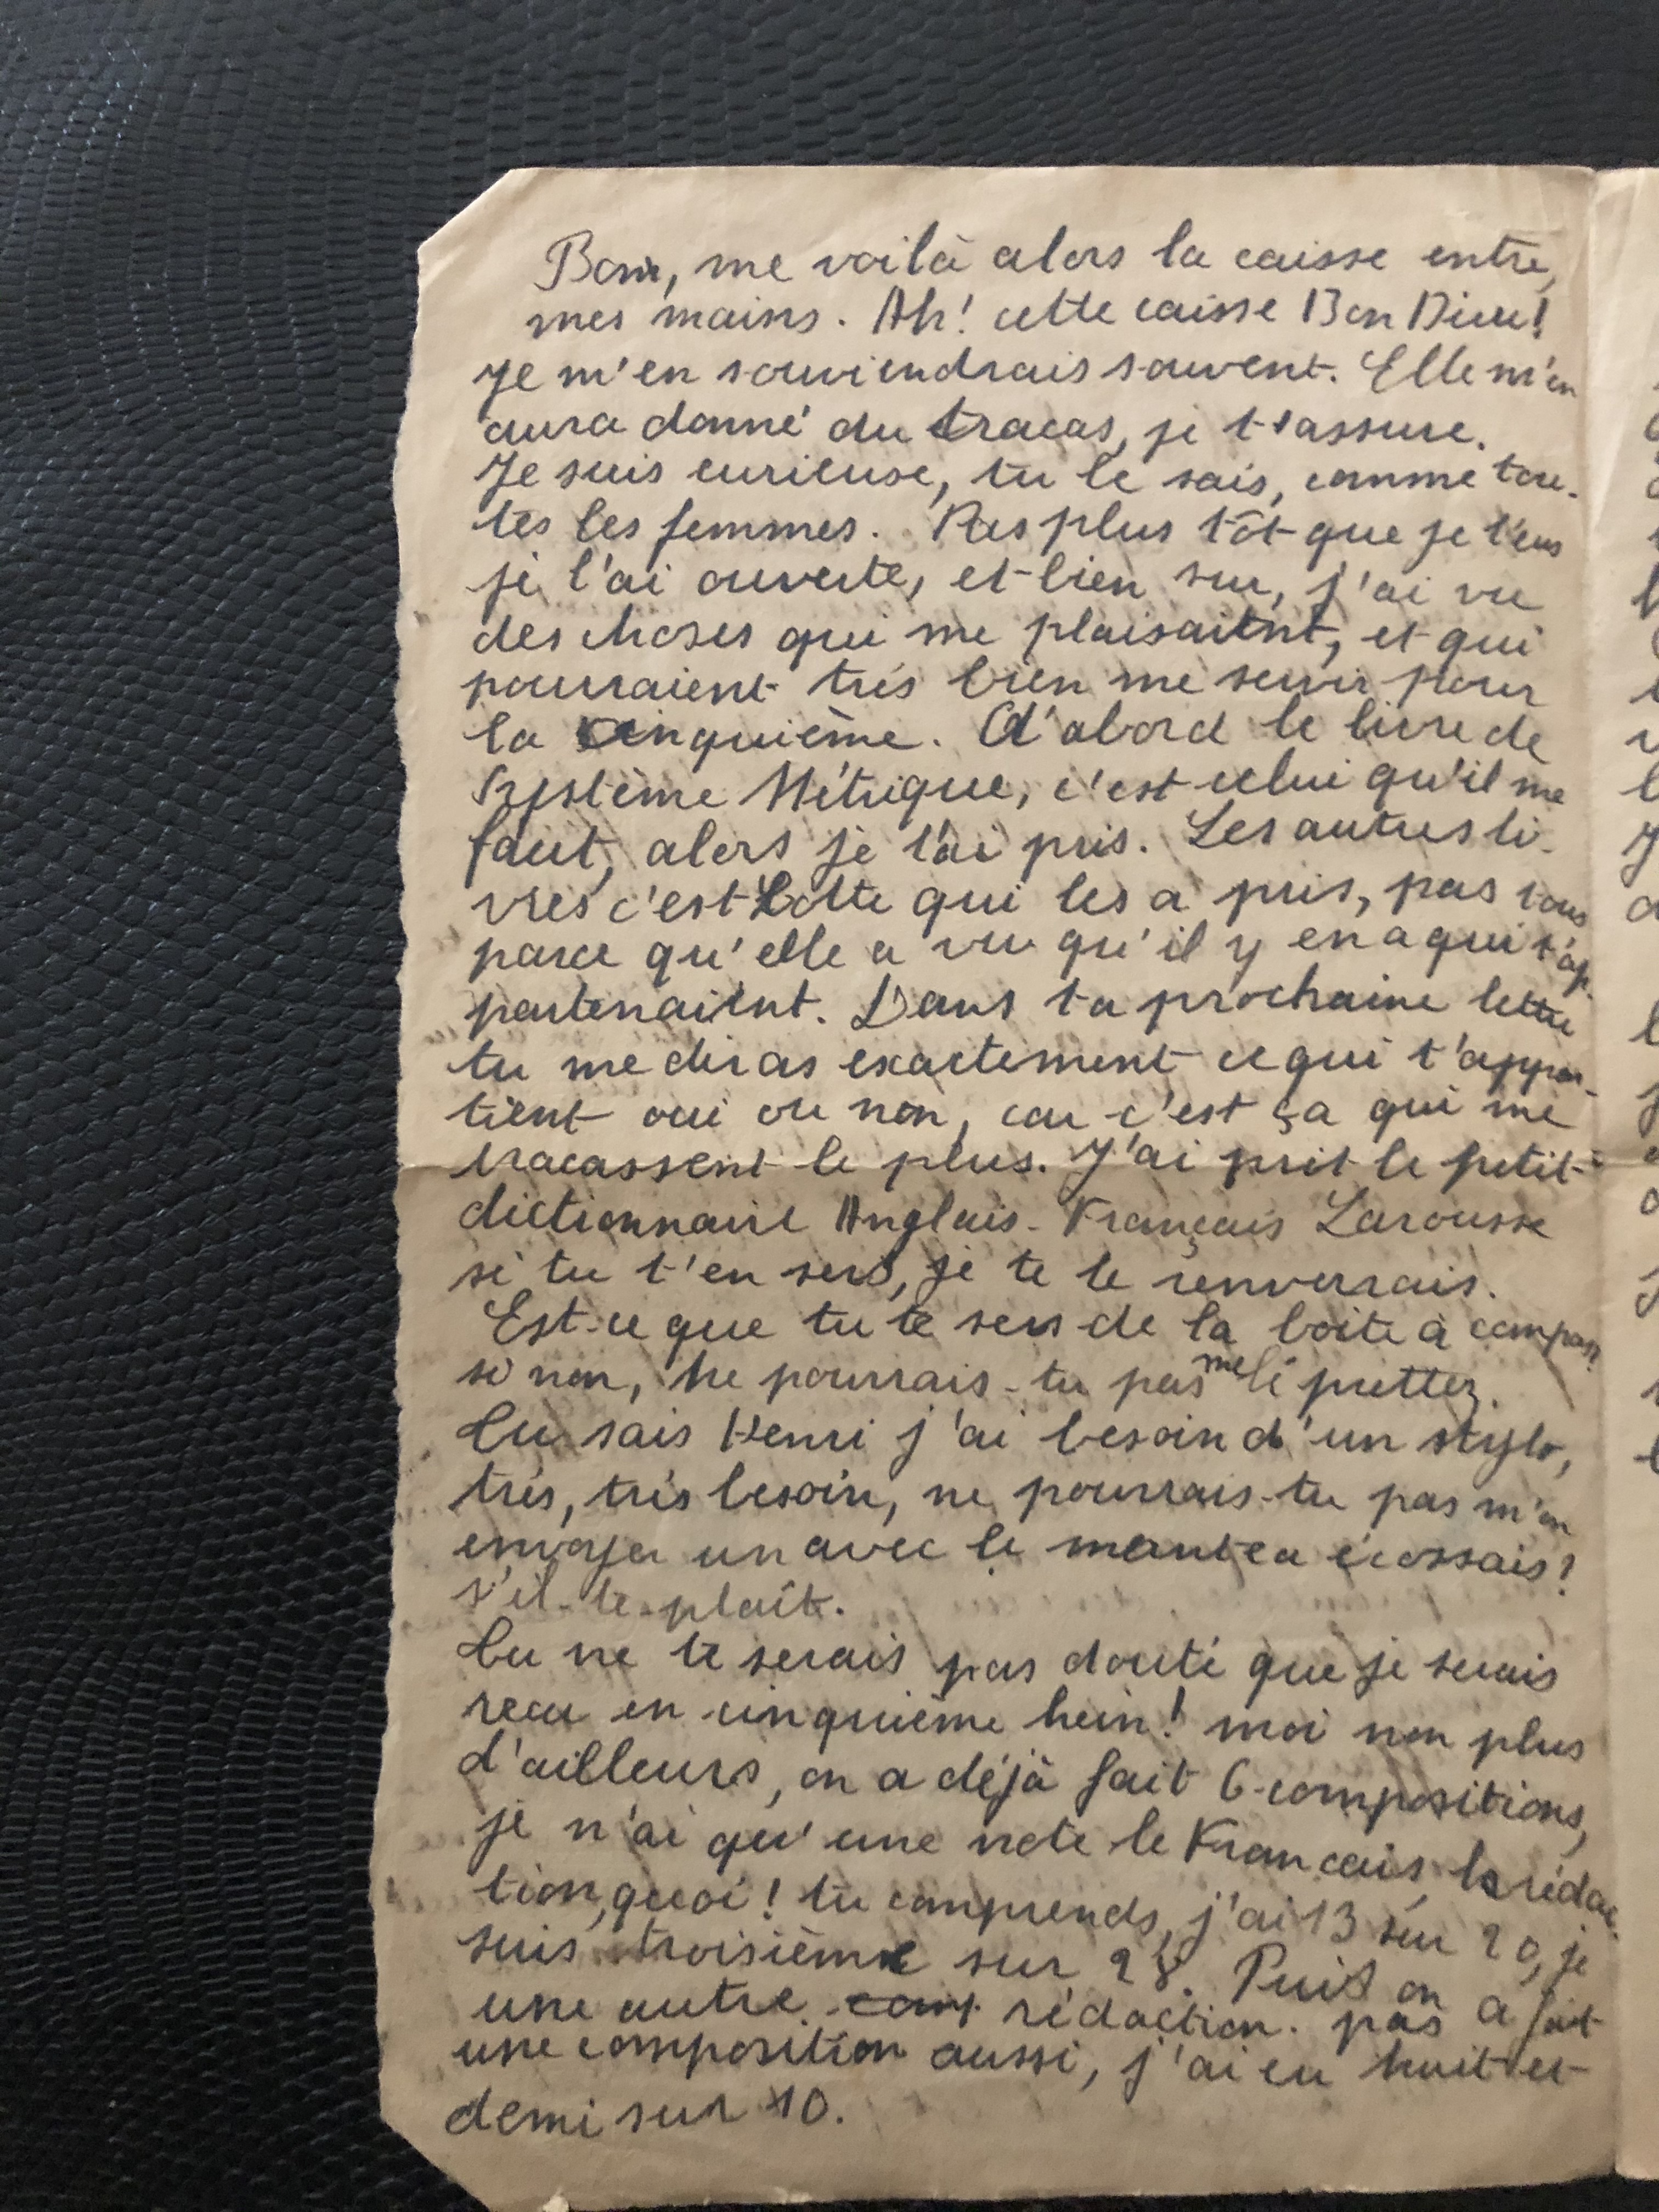 Bon, me voilà alors la caisse entre
mes mains. Ah! cette caisse Bon Dieu!
Je m'en souviendrais souvent. Elle m'en
aura donné du tracas, je t'assure.
Je suis curieuse, tu le sais, comme tou-
tes les femmes. Pas plus tôt que je l'eus
je l'ai ouverte, et bien sur, j'ai vu
des choses qui me plaisaient, et qui
pourraient très bien me servir pour
la cinquième. D'abord le livre de
Système Métrique, c'est celui qu'il me
faut, alors je l'ai pris. Les autres li-
vres c'est Lotte qui les a pris, pas tous
parce qu'elle a vu qu'il y en a qui t'ap-
partenaient. Dans ta prochaine lettre
tu me diras exactement ce qui t'appar-
tient oui ou non, car c'est ça qui me
tracassent le plus. J'ai prit le petit
dictionnaire Anglais-Français Larousse
si tu t'en sers, je te le renverrais.
Est-ce que tu te sers de la boite à compas?
si non, ne pourrais-tu pas me le prettez.
Tu sais Henri j'ai besoin d'un stylo,
très, très besoin, ne pourrais-tu pas m'en
envoyer un avec le mantea écossais?
s'il-te-plaît.
Tu ne te serais pas douté que je serais
recu en cinquième hein! moi non plus
d'ailleurs, on a déjà fait 6 compositions,
je n'ai qu'une note le Francais, la rédac-
tion, quoi! tu comprends, j'ai 13 sur 20, je
suis troisième sur 28. Puis on a fait
une autre comp rédaction. pas
une composition aussi, j'ai eu huit et
demi sur 10.